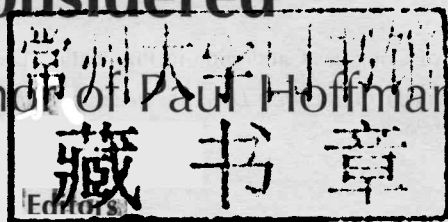 onsidered
常州大学图书馆
nor of Paul Hoffman
藏书章
Editors